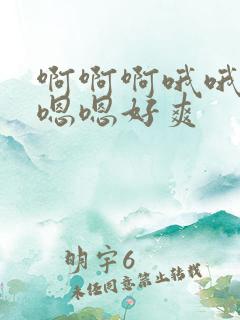 啊啊啊哦哦
嗯嗯好爽
明宇6
未经同意禁止转载